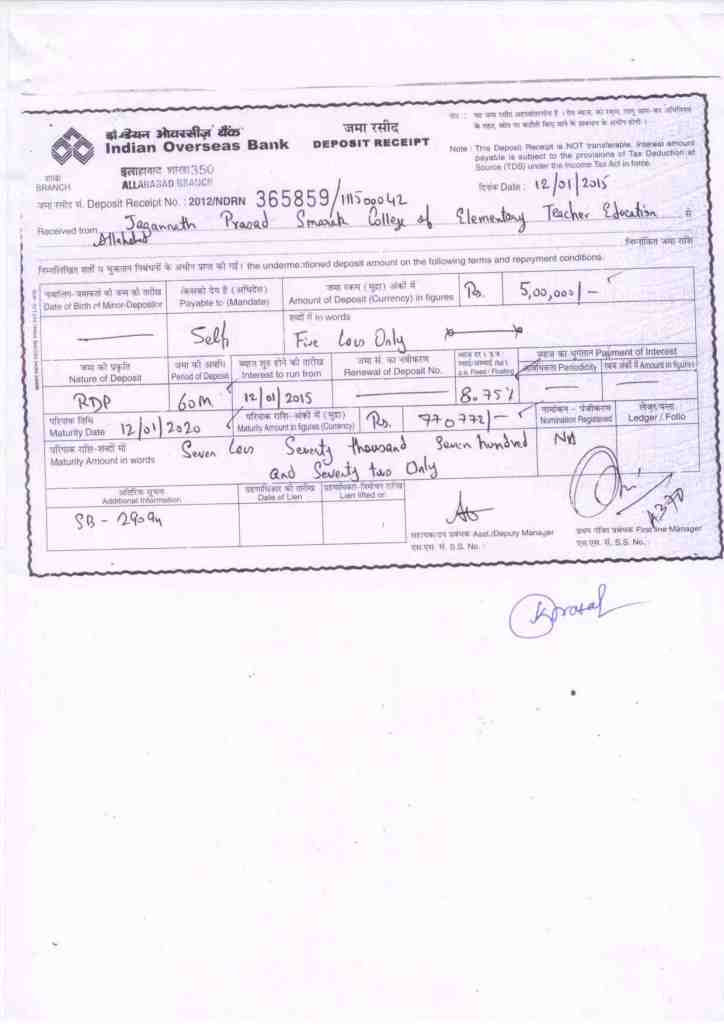 इण्डियन ओवरसीज़ बैंक
Indian Overseas Bank
जमा रसीद
DEPOSIT RECEIPT
Note : This Deposit Receipt is NOT transferable. Interest amount
payable is subject to the provisions of Tax Deduction at
Source (TDS) under the Income Tax Act in force.
शाखा
BRANCH
इलाहाबाद शाखा350
ALLAHABAD BRANCH
दिनांक Date : 12/01/2015
जमा रसीद सं. Deposit Receipt No. : 2012/NDRN 365859/111500042
Received from Jagannath Prasad Smarak College of Elementary Teacher Education से
Allahabad
निम्नांकित जमा राशि
निम्नलिखित शर्तों व चुकौती निबंधनों के अधीन प्राप्त की गई। the undermentioned deposit amount on the following terms and repayment conditions.
Date of Birth of Minor-Depositor
किसको देय है (अधिदेश)
Payable to (Mandate)
जमा रकम (मुद्रा) अंकों में
Amount of Deposit (Currency) in figures
Rs. 5,00,000/-
Self
शब्दों में In words
Five Lacs Only
जमा की प्रकृति
Nature of Deposit
जमा की अवधि
Period of Deposit
ब्याज शुरू होने की तारीख
Interest to run from
जमा सं. का नवीकरण
Renewal of Deposit No.
p.a. Fixed / Floating
ब्याज का भुगतान Payment of Interest
आवधिकता Periodicity
रकम अंकों में Amount in figures
RDP
60M
12/01/2015
8.75%
परिपक्व तिथि
Maturity Date 12/01/2020
परिपक्व राशि-अंकों में (मुद्रा)
Maturity Amount in figures (Currency)
Rs. 770772/-
नामांकन - पंजीकरण
Nomination Registered
लेजर/पन्ना
Ledger / Folio
परिपक्व राशि-शब्दों में
Maturity Amount in words
Seven Lacs Seventy thousand Seven hundred
and Seventy two Only
अतिरिक्त सूचना
Additional Information
Date of Lien
Lien lifted on
SB - 29094
A370
Asst./Deputy Manager
एस.एस. सं. S.S. No. :
First line Manager
एस.एस. सं. S.S. No. :